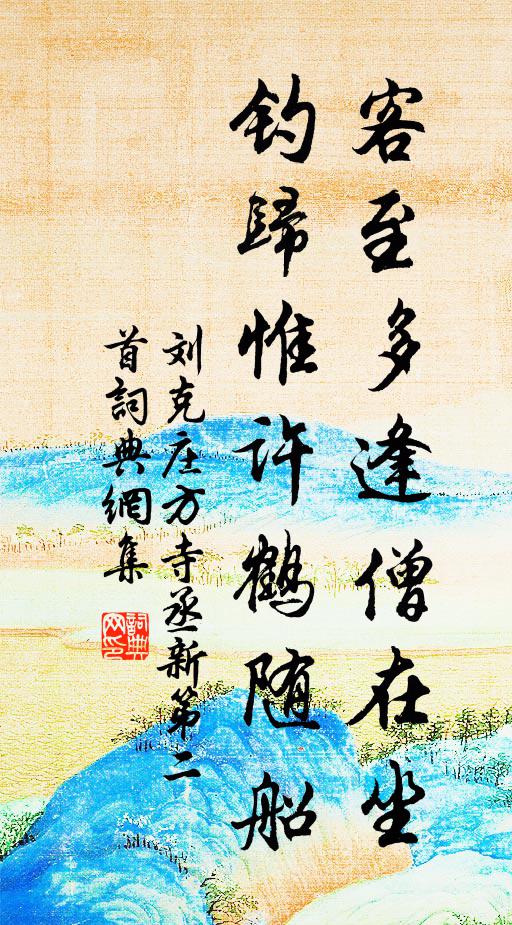 客至多逢僧在坐
钓歸惟许鹤随船
刘克庄方寺丞新第二
首詞典網集
詞典
网印